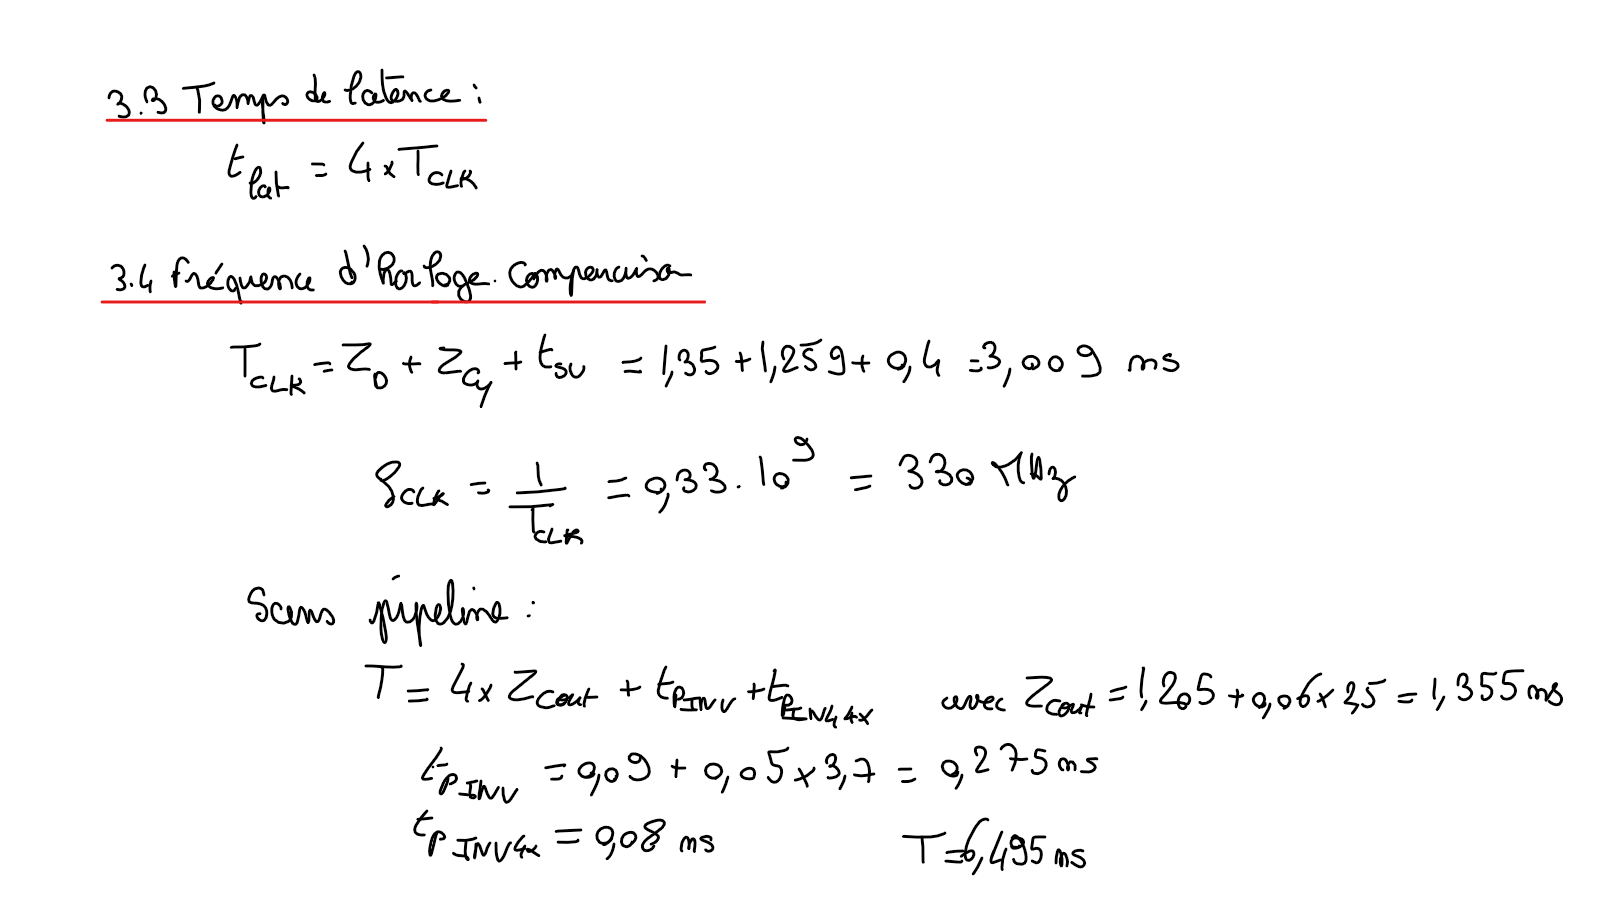 3.3 Temps de latence :
t_lat = 4 x T_CLK
3.4 fréquence d'horloge. Comparaison
T_CLK = Z_D + Z_Cy + t_SU = 1,35 + 1,259 + 0,4 = 3,009 ns
f_CLK = 1/T_CLK = 0,33 . 10^9 = 330 MHz
Sans pipeline :
T = 4 x Z_Cout + t_PINV + t_PINV4x avec Z_Cout = 1,205 + 0,06 x 2,5 = 1,355 ns
t_PINV = 0,09 + 0,05 x 3,7 = 0,275 ns
t_PINV4x = 0,08 ns T = 6,495 ns